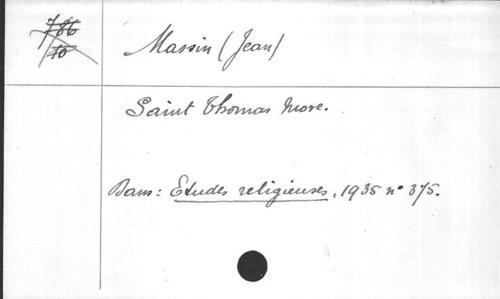 786
10
Massin (Jean)
Saint Thomas More.
Dans: Etudes religieuses, 1935 n° 375.